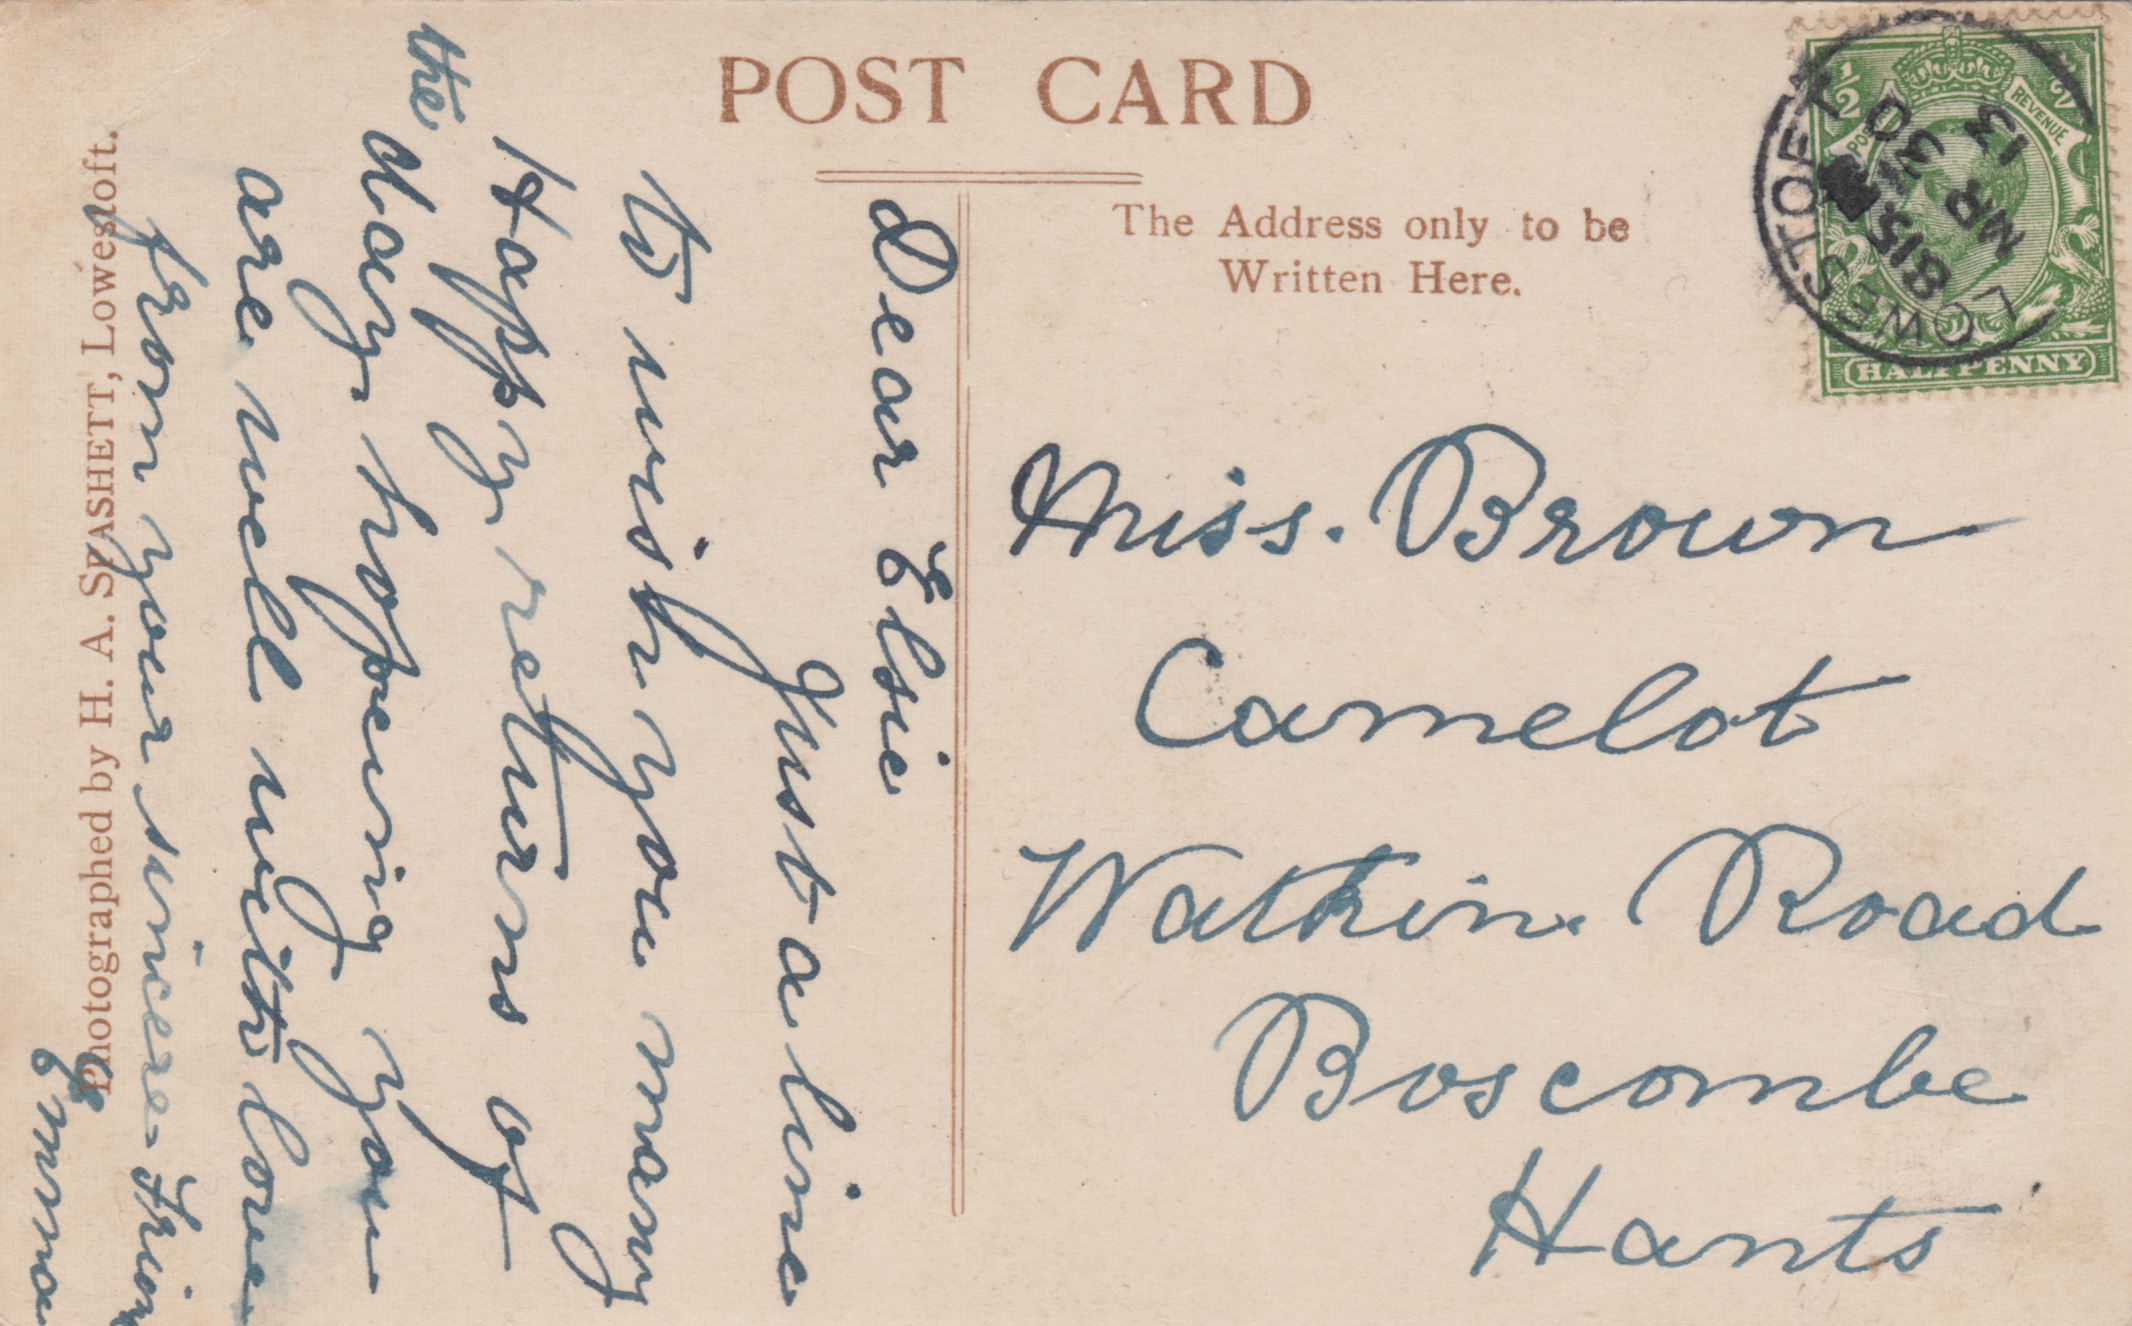 POST CARD
The Address only to be
Written Here.
½
POS
REVENUE
HALFPENNY
LOWESTOFT
815 P
MR 30
13
Miss. Brown
Camelot
Watkin. Road
Boscombe
Hants
Dear Elsie
Just a line
to wish you many
Happy returns of
the day hopeing you
are well with love
from your sincere Frien
Emma
Photographed by H. A. SPASHETT, Lowestoft.